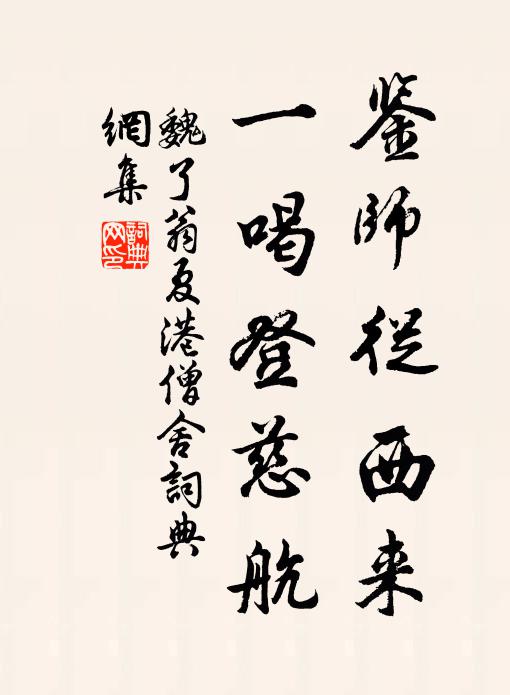 鉴師從西来
一喝登慈航
魏了翁夏港僧舍詞典
網集
詞典
网印